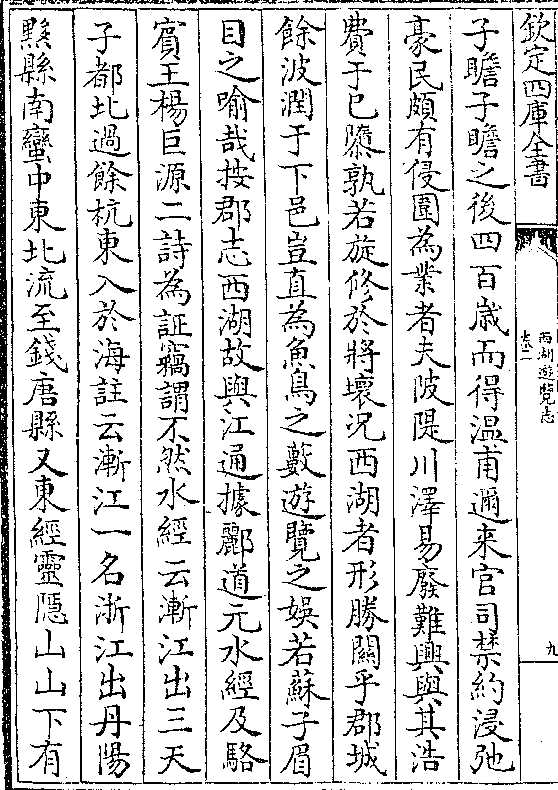 欽定四庫全書
西湖遊覽志
卷二
九
子瞻子瞻之後四百歳而得溫甫邇来官司禁約浸弛
豪民頗有侵圍為業者夫陂隄川澤易廢難興與其浩
費于已隳孰若旋修於將壞况西湖者形勝關乎郡城
餘波潤于下邑豈直為魚鳥之藪遊覽之娛若蘇子眉
目之喻哉按郡志西湖故與江通據酈道元水經及駱
賓王楊巨源二詩為証竊謂不然水經云漸江出三天
子都北過餘杭東入於海註云漸江一名浙江出丹陽
黟縣南蠻中東北流至錢唐縣又東經靈隱山山下有